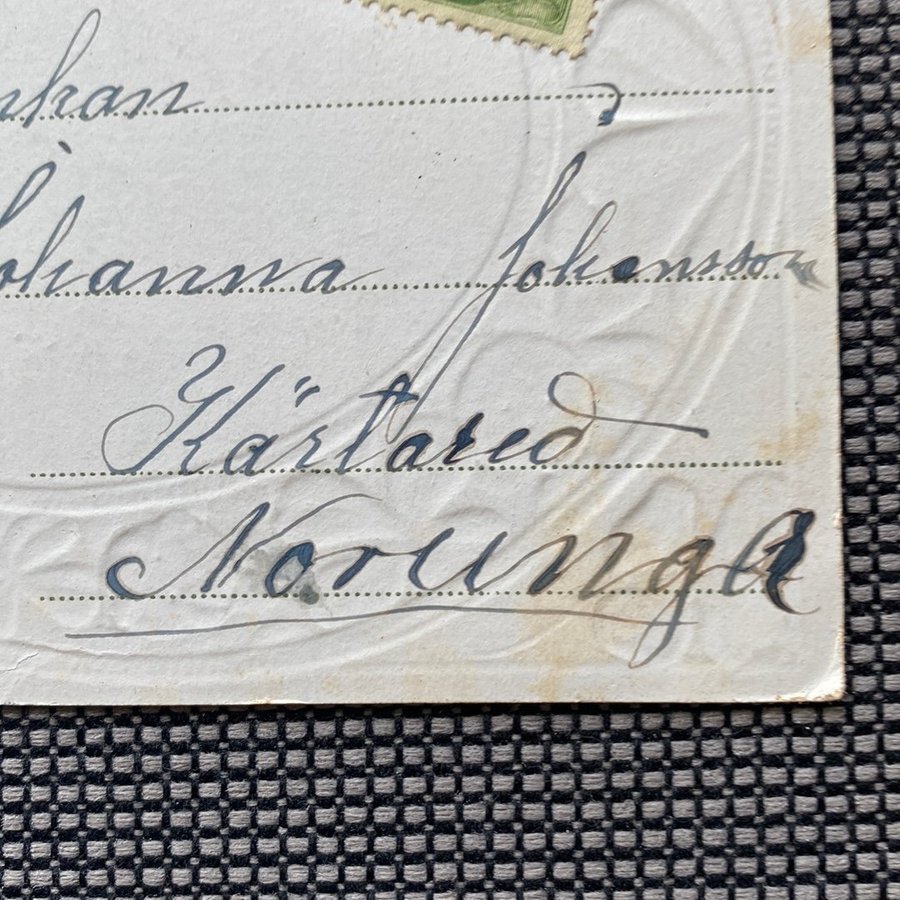 nkan
Johanna Johansson
Kärtared
Norunga